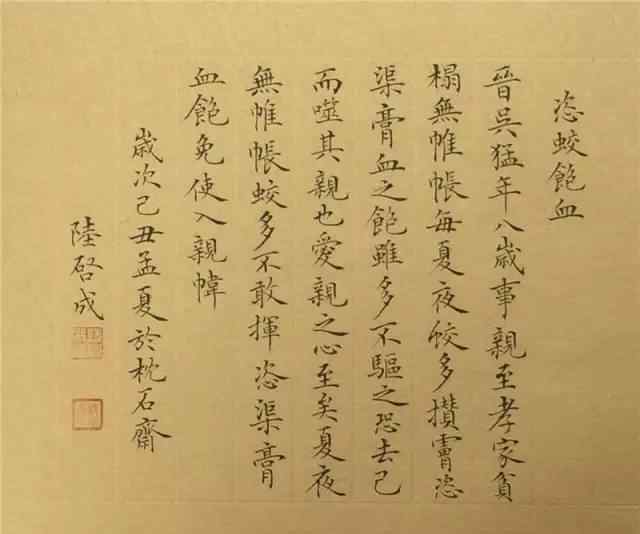 恣蚊飽血
晉吳猛年八歲事親至孝家貧
榻無帷帳每夏夜蚊多攢膚恣
渠膏血之飽雖多不驅之恐去己
而噬其親也愛親之心至矣夏夜
無帷帳蚊多不敢揮恣渠膏
血飽免使入親幃
歲次己丑孟夏於枕石齋
陸啓成